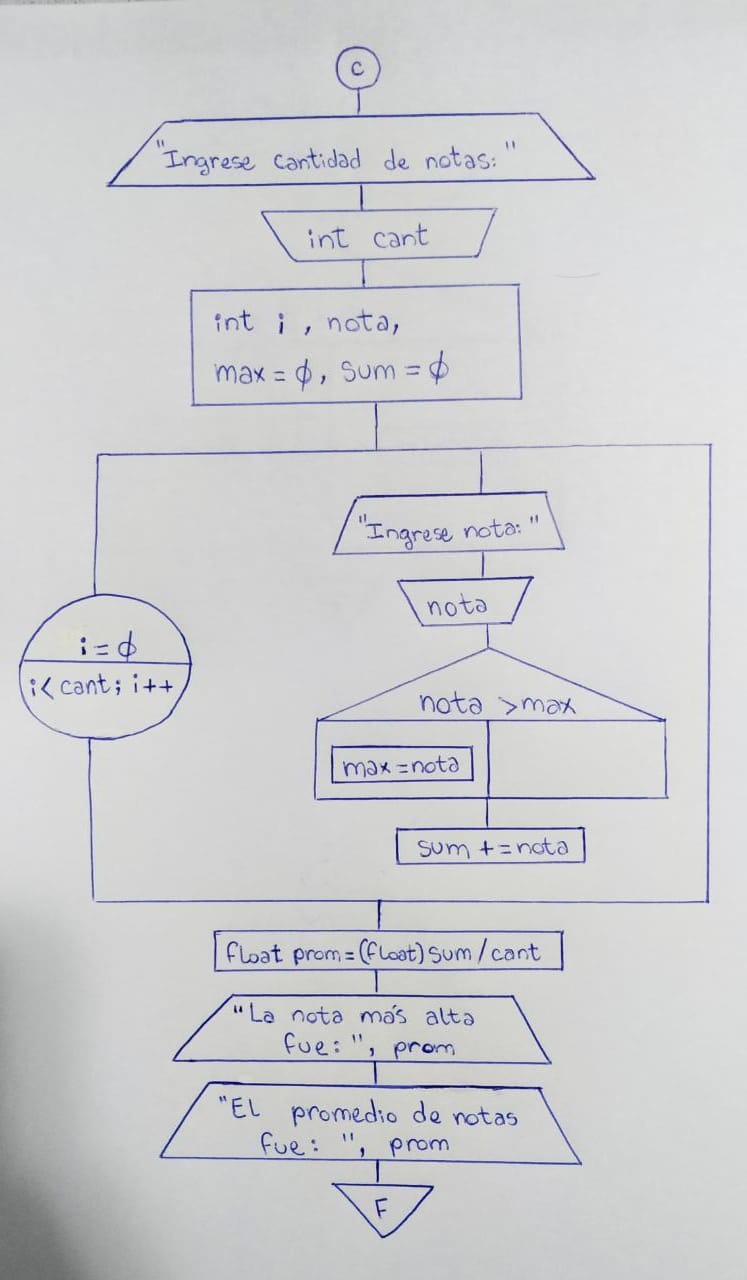 C
"Ingrese cantidad de notas: "
int cant
int i, nota,
max = ϕ, sum = ϕ
"Ingrese nota: "
nota
i = ϕ
i < cant; i++
nota > max
max = nota
sum += nota
float prom = (float) sum / cant
"La nota más alta
fue: ", prom
"El promedio de notas
fue: ", prom
F